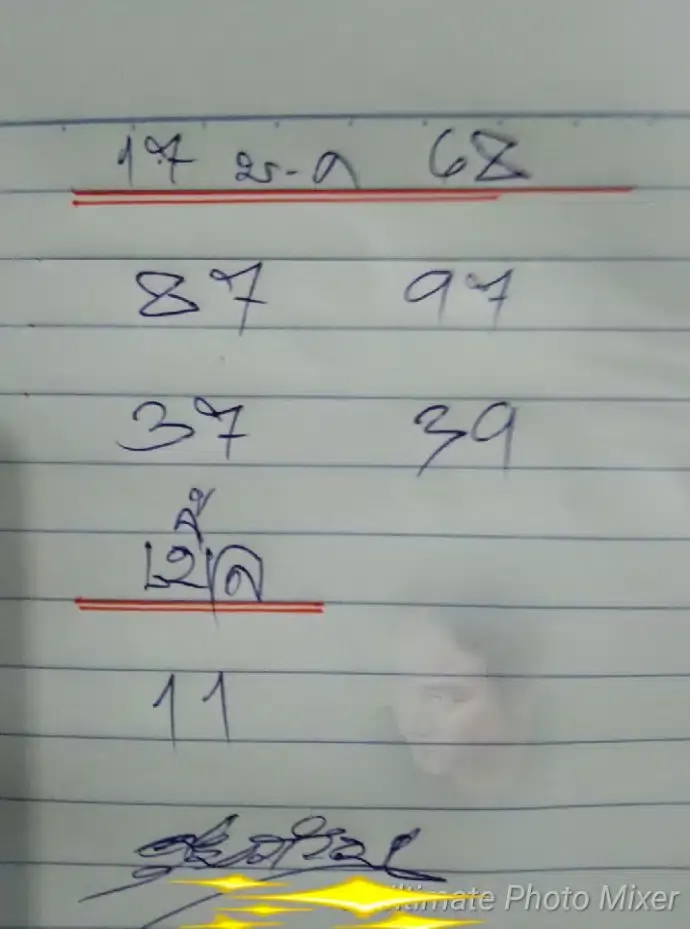 17 ม.ค 68
87 97
37 39
11
Ultimate Photo Mixer